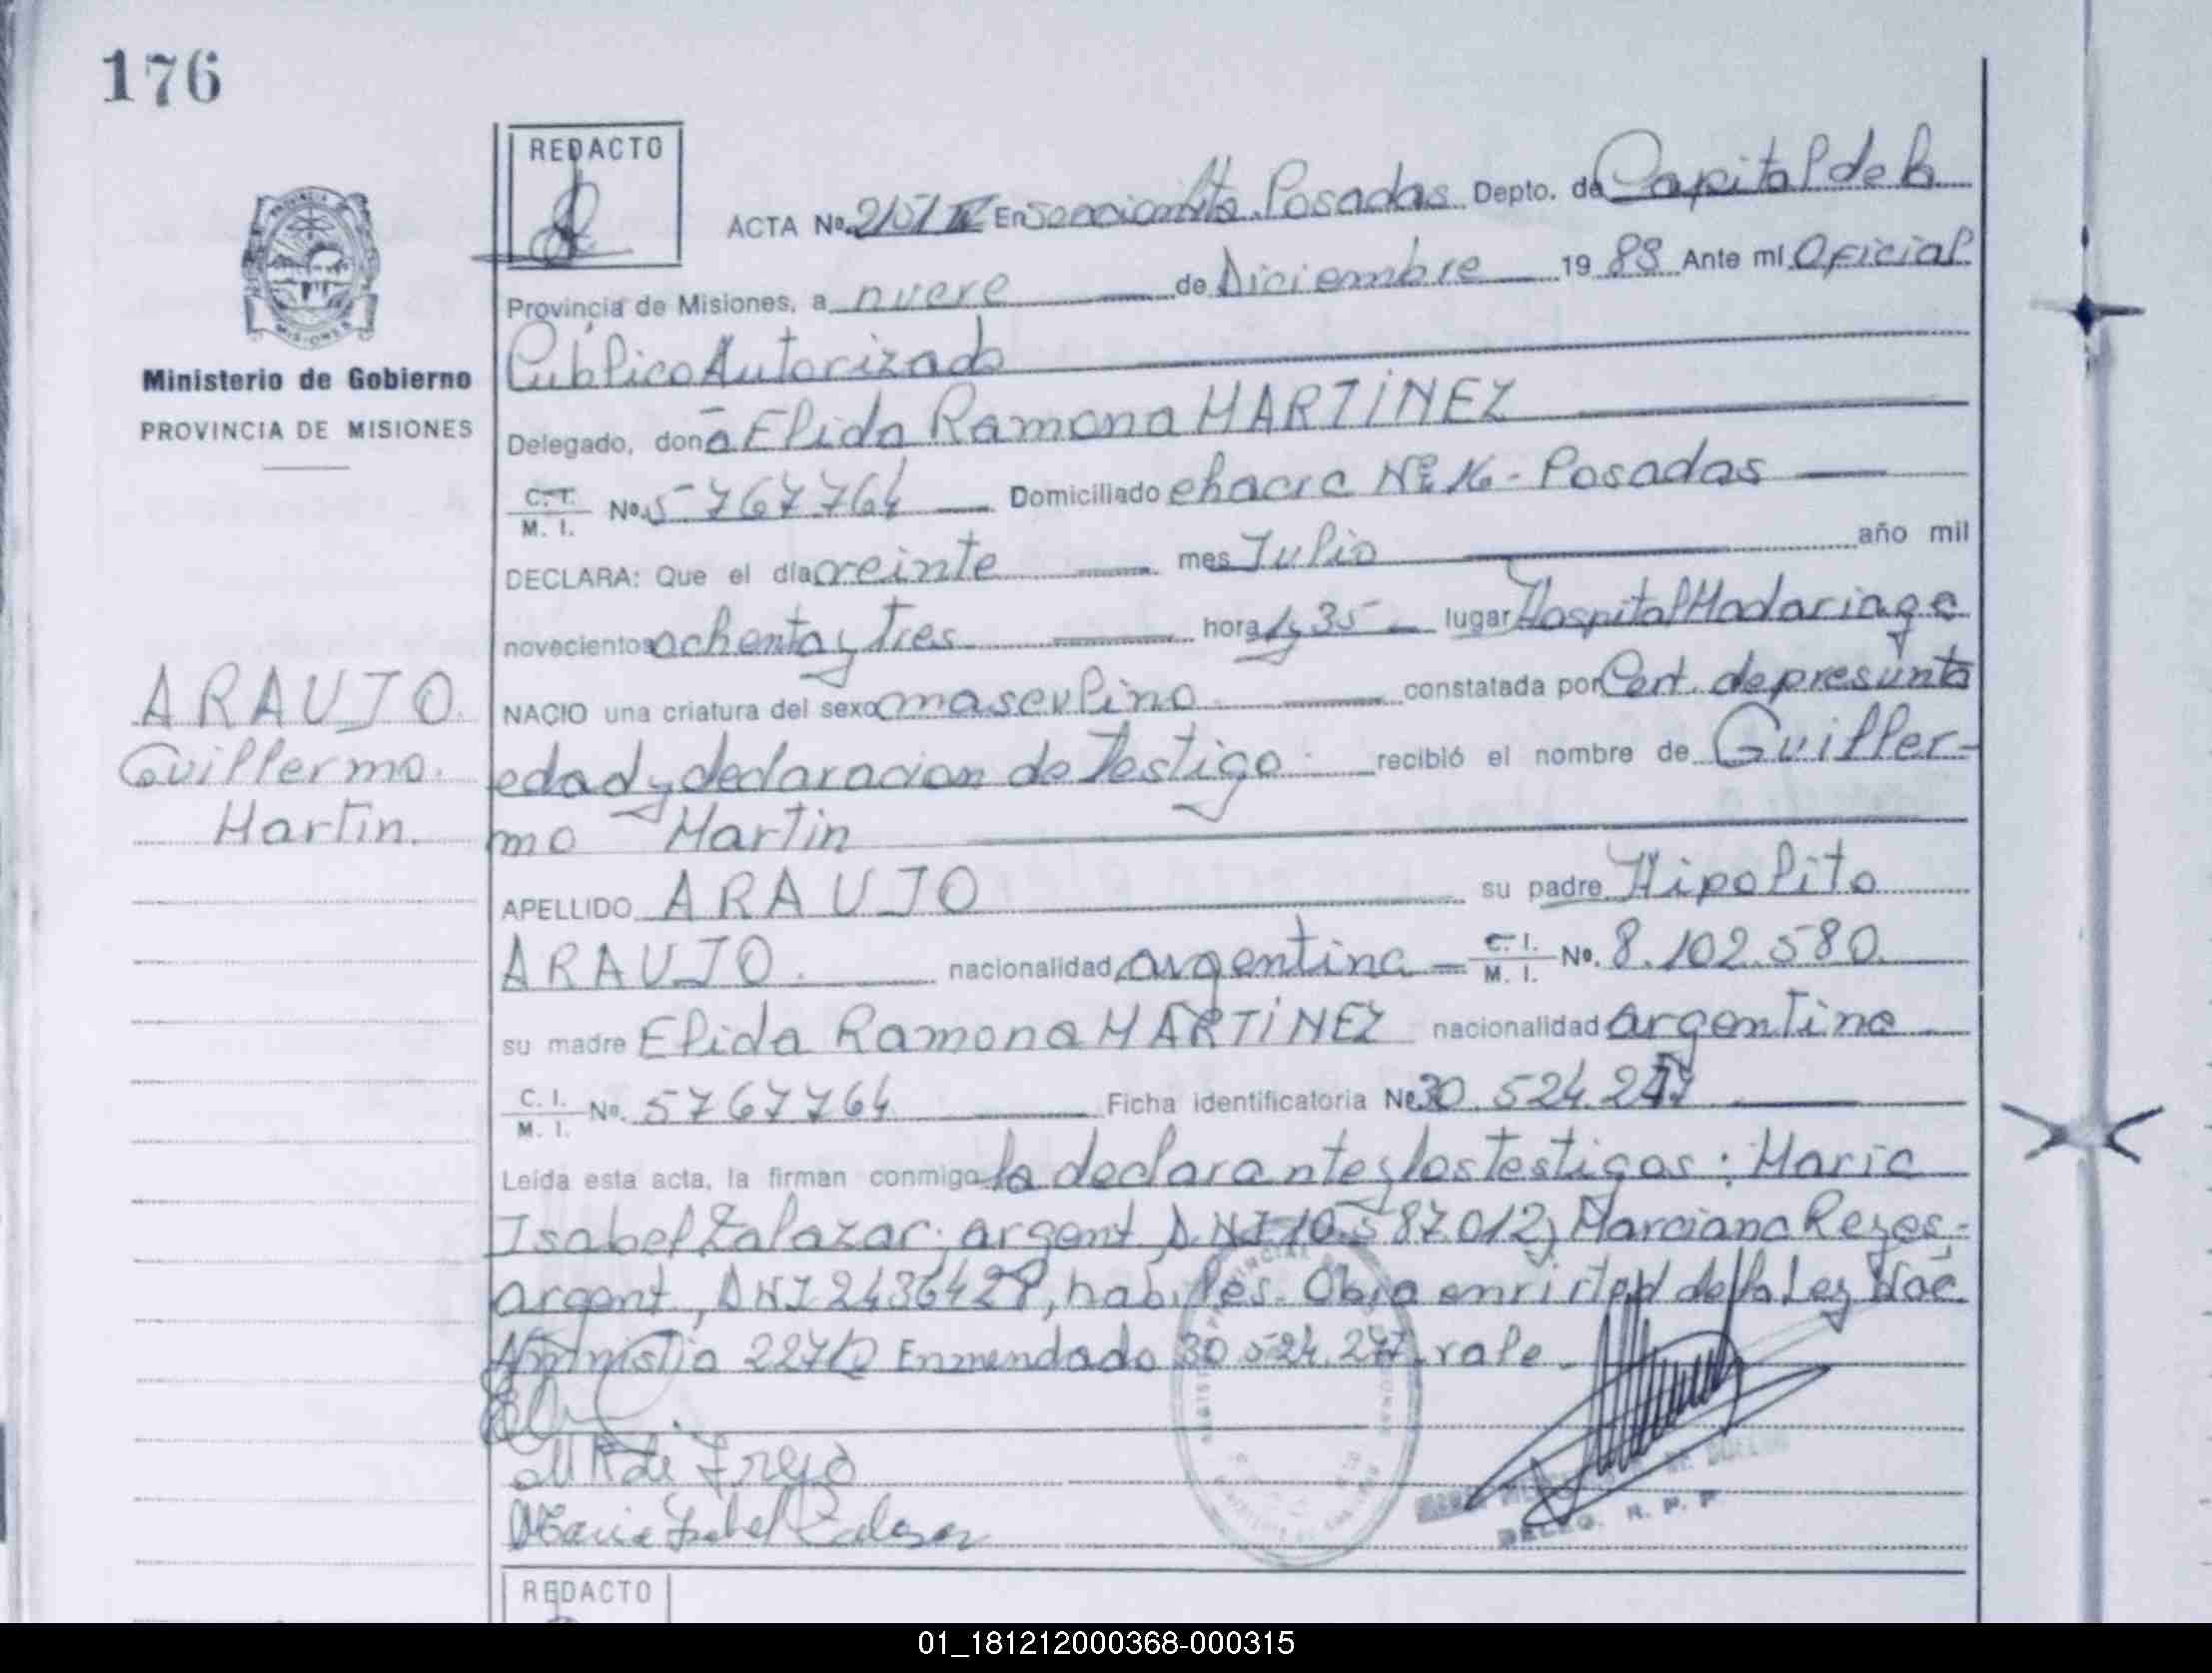 176
REDACTO
ACTA No. 2151 IV En Posadas Depto. de Capital de la
Provincia de Misiones, a nueve de Diciembre 19 88 Ante mi Oficial
Público Autorizado
Ministerio de Gobierno
PROVINCIA DE MISIONES
Delegado, doña Elida Ramona MARTINEZ
C.I. M. I. No. 5767764 Domiciliado chacra Nº 16 - Posadas
DECLARA: Que el día veinte mes Julio año mil
novecientos ochenta y Tres hora 1,35 lugar Hospital Madariaga
NACIO una criatura del sexo masculino constatada por Cert. de presunta
edad y declaracion de Testigo recibió el nombre de Guiller-
mo Martin
ARAUJO.
Guillermo.
Martin.
APELLIDO ARAUJO su padre Hipolito
ARAUJO. nacionalidad argentina C. I. M. I. No. 8.102.580
su madre Elida Ramona MARTINEZ nacionalidad argentina
C. I. M. I. No. 5767764 Ficha identificatoria No 30.524.277
Leída esta acta, la firman conmigo la declarante y los Testigos: Maria
Isabel Zalazar; argent, D.N.I 10.587.012 y Marciana Reyes;
argent, DNI 2436427, habiles. Obra en virtud de la Ley Nac.
Amnistia Enmendado 30.524.277. vale.
Maria Isabel Zalazar
DELEG. R. P. P.
REDACTO
01_181212000368-000315